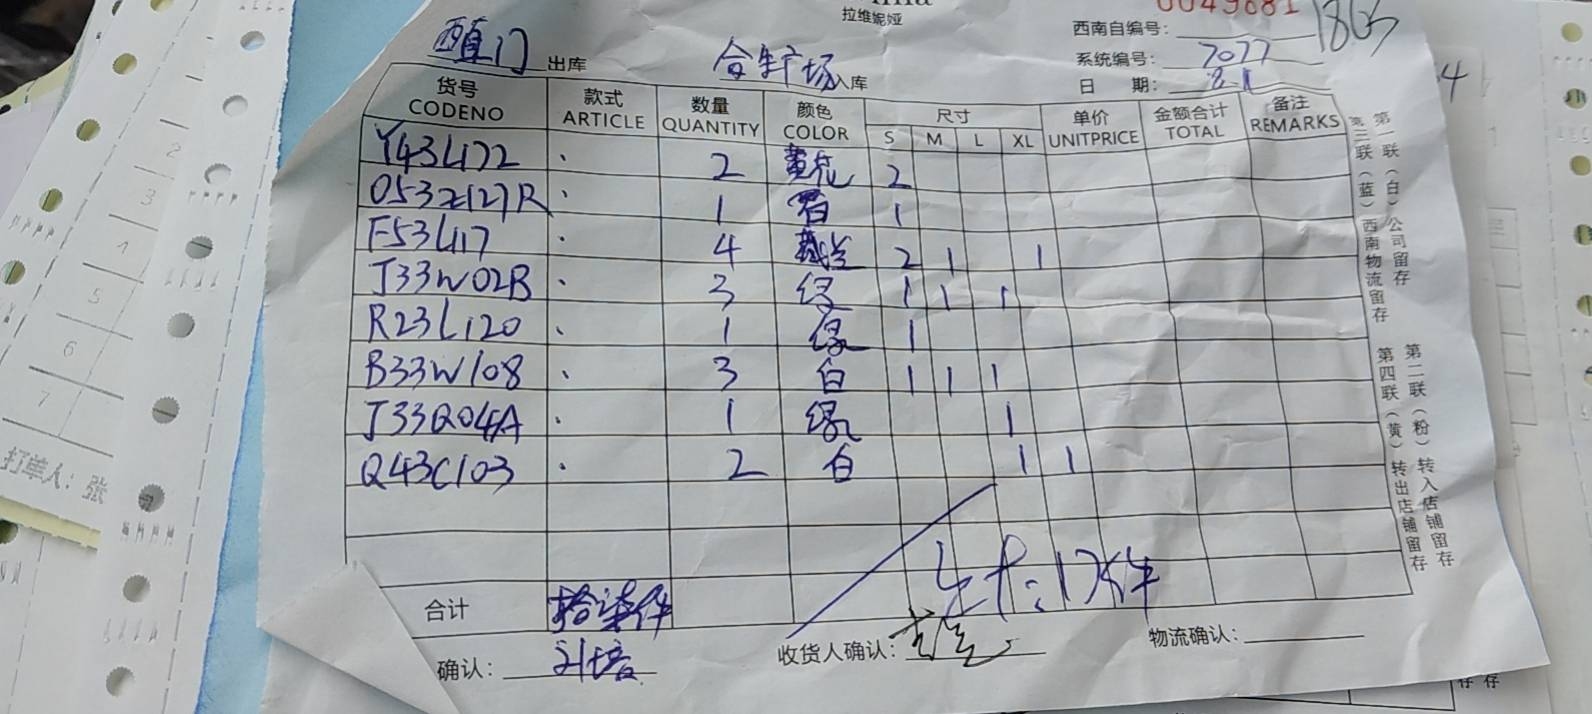 拉维妮娅
0049681
西南自编号: 1863
西直门 出库 合生广场 入库
系统编号: 7077
日 期: 8.1
货号 款式 数量 颜色 尺寸 单价 金额合计 备注
CODENO ARTICLE QUANTITY COLOR S M L XL UNITPRICE TOTAL REMARKS
Y43L172 2 黄花 2
053Z127R 1 1
F53L117 4 藏兰 2 1 1
J33W02B 3 绿 1 1 1
R23L120 1 绿 1
B33W108 3 白 1 1 1
J33Q04A 1 绿 1
Q43C103 2 白 1 1
17件
合计 拾柒件
确认: 收货人确认: 物流确认:
第一联(白)公司留存
第三联(蓝)西南物流留存
第二联(粉)转入店铺留存
第四联(黄)转出店铺留存
2
3
4
5
6
7
打单人: 张